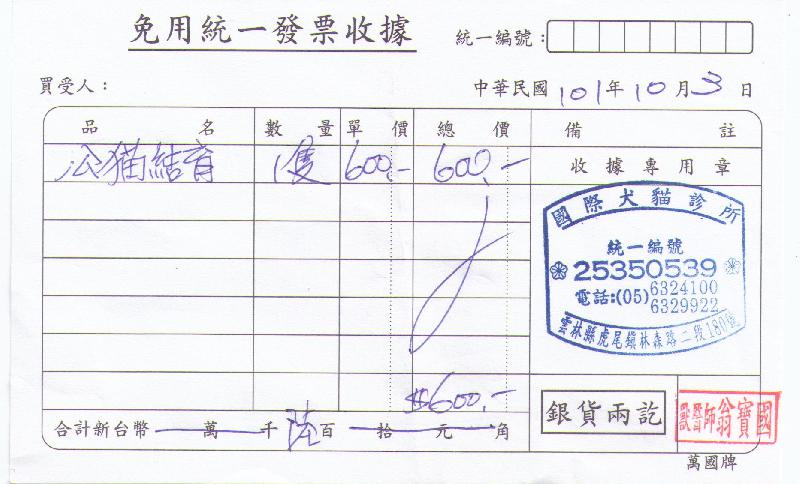 免用統一發票收據
統一編號:
買受人:
中華民國 101年 10月 3日
品名 數量 單價 總價 備註
公猫結育 1隻 600.- 600.- 收據專用章
國際犬貓診所
統一編號
25350539
電話:(05)6324100
6329922
雲林縣虎尾鎮林森路二段180號
$600.-
合計新台幣 萬 千 陸百 拾 元 角
銀貨兩訖
國寶翁師醫獸
萬國牌